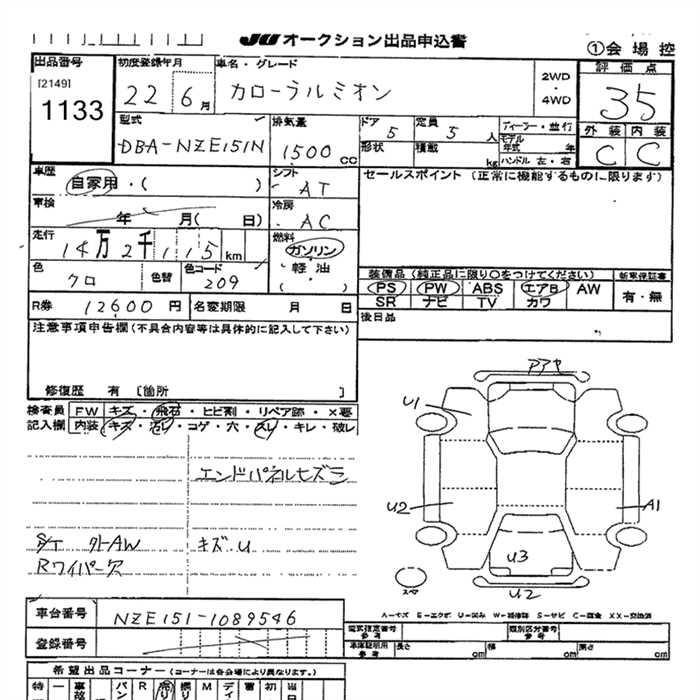 JU オークション出品申込書
①会場控
出品番号 初度登録年月 車名・グレード 評価点
[2149]
1133
22 6月 カローラルミオン 2WD・4WD 35
型式 排気量 ドア 定員 ディーラー・並行 外装 内装
DBA-NZE151N 1500cc 5 5人 モデル年式 年 C C
形状 積載 kg ハンドル 左・右
車歴 シフト セールスポイント(正常に機能するものに限ります)
自家用・( ) AT
車検 冷房
年 月( 日) AC
走行 燃料
14万2千115km ガソリン
軽油
( )
色 色替 色コード
クロ 209
装備品(純正品に限り○をつけてください) 新車保証書
PS PW ABS エアB AW 有・無
SR ナビ TV カワ
R券 12600円 名変期限 月 日
後日品
注意事項申告欄(不具合内容等は具体的に記入して下さい)
修復歴 有 [箇所 ]
検査員 FW キズ・飛石・ヒビ割・リペア跡・×要
記入欄 内装 キズ・汚レ・コゲ・穴・スレ・キレ・破レ
エンドパネルヒズミ
S/T 外AW キズU
Rワイパー欠
U1
U2
A1
U3
U2
車台番号 NZE151-1089546
登録番号
A=キズ E=エクボ U=凹み W=補修跡 S=サビ C=腐食 XX=交換済
型式指定番号 参考 類別区分番号 参考
車庫証明用 参考 長さ cm 幅 cm 高さ cm
希望出品コーナー(コーナーは各会場により異なります。)